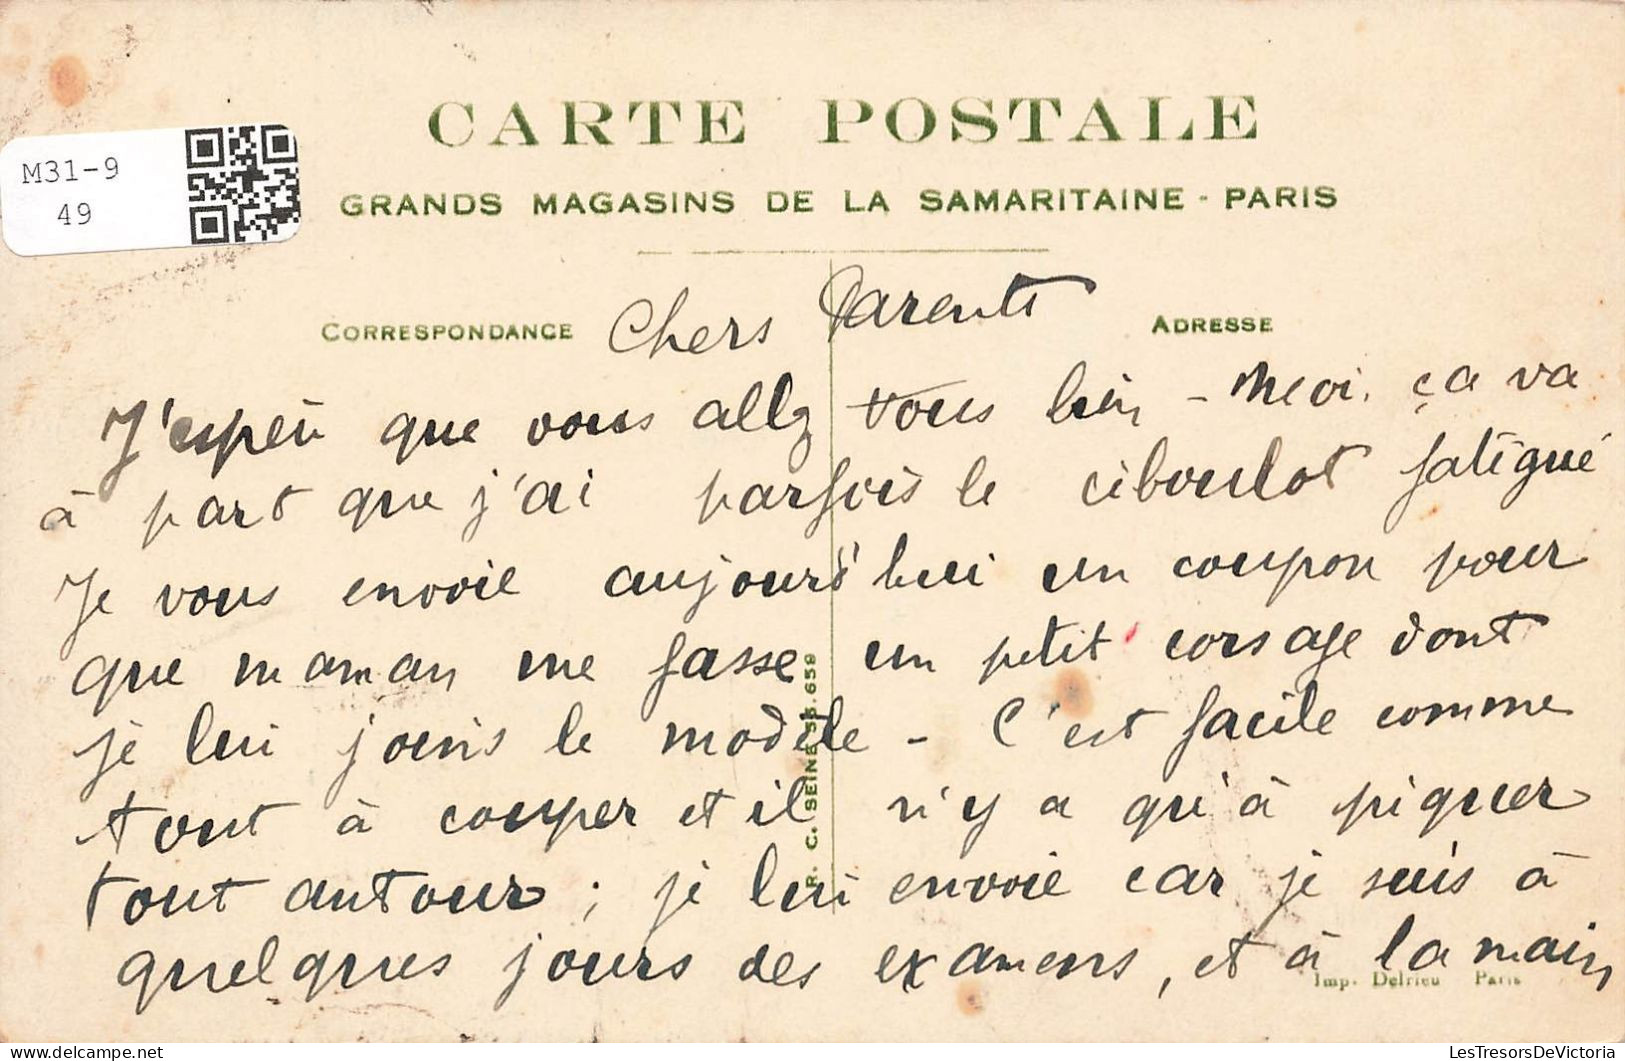 CARTE POSTALE
GRANDS MAGASINS DE LA SAMARITAINE - PARIS
M31-9
49
CORRESPONDANCE
ADRESSE
Chers Parents
J'espère que vous allez vous bien - Moi, ça va
à part que j'ai parfois le ciboulot fatigué
Je vous envoie aujourd'hui un coupon pour
que maman me fasse un petit corsage dont
je lui joins le modèle - C'est facile comme
tout à couper et il n'y a qu'à piquer
tout autour ; je lui envoie car je suis à
quelques jours des examens, et à la main
R. C. SEINE 55.659
Imp. Delrieu Paris
LesTresorsDeVictoria
delcampe.net